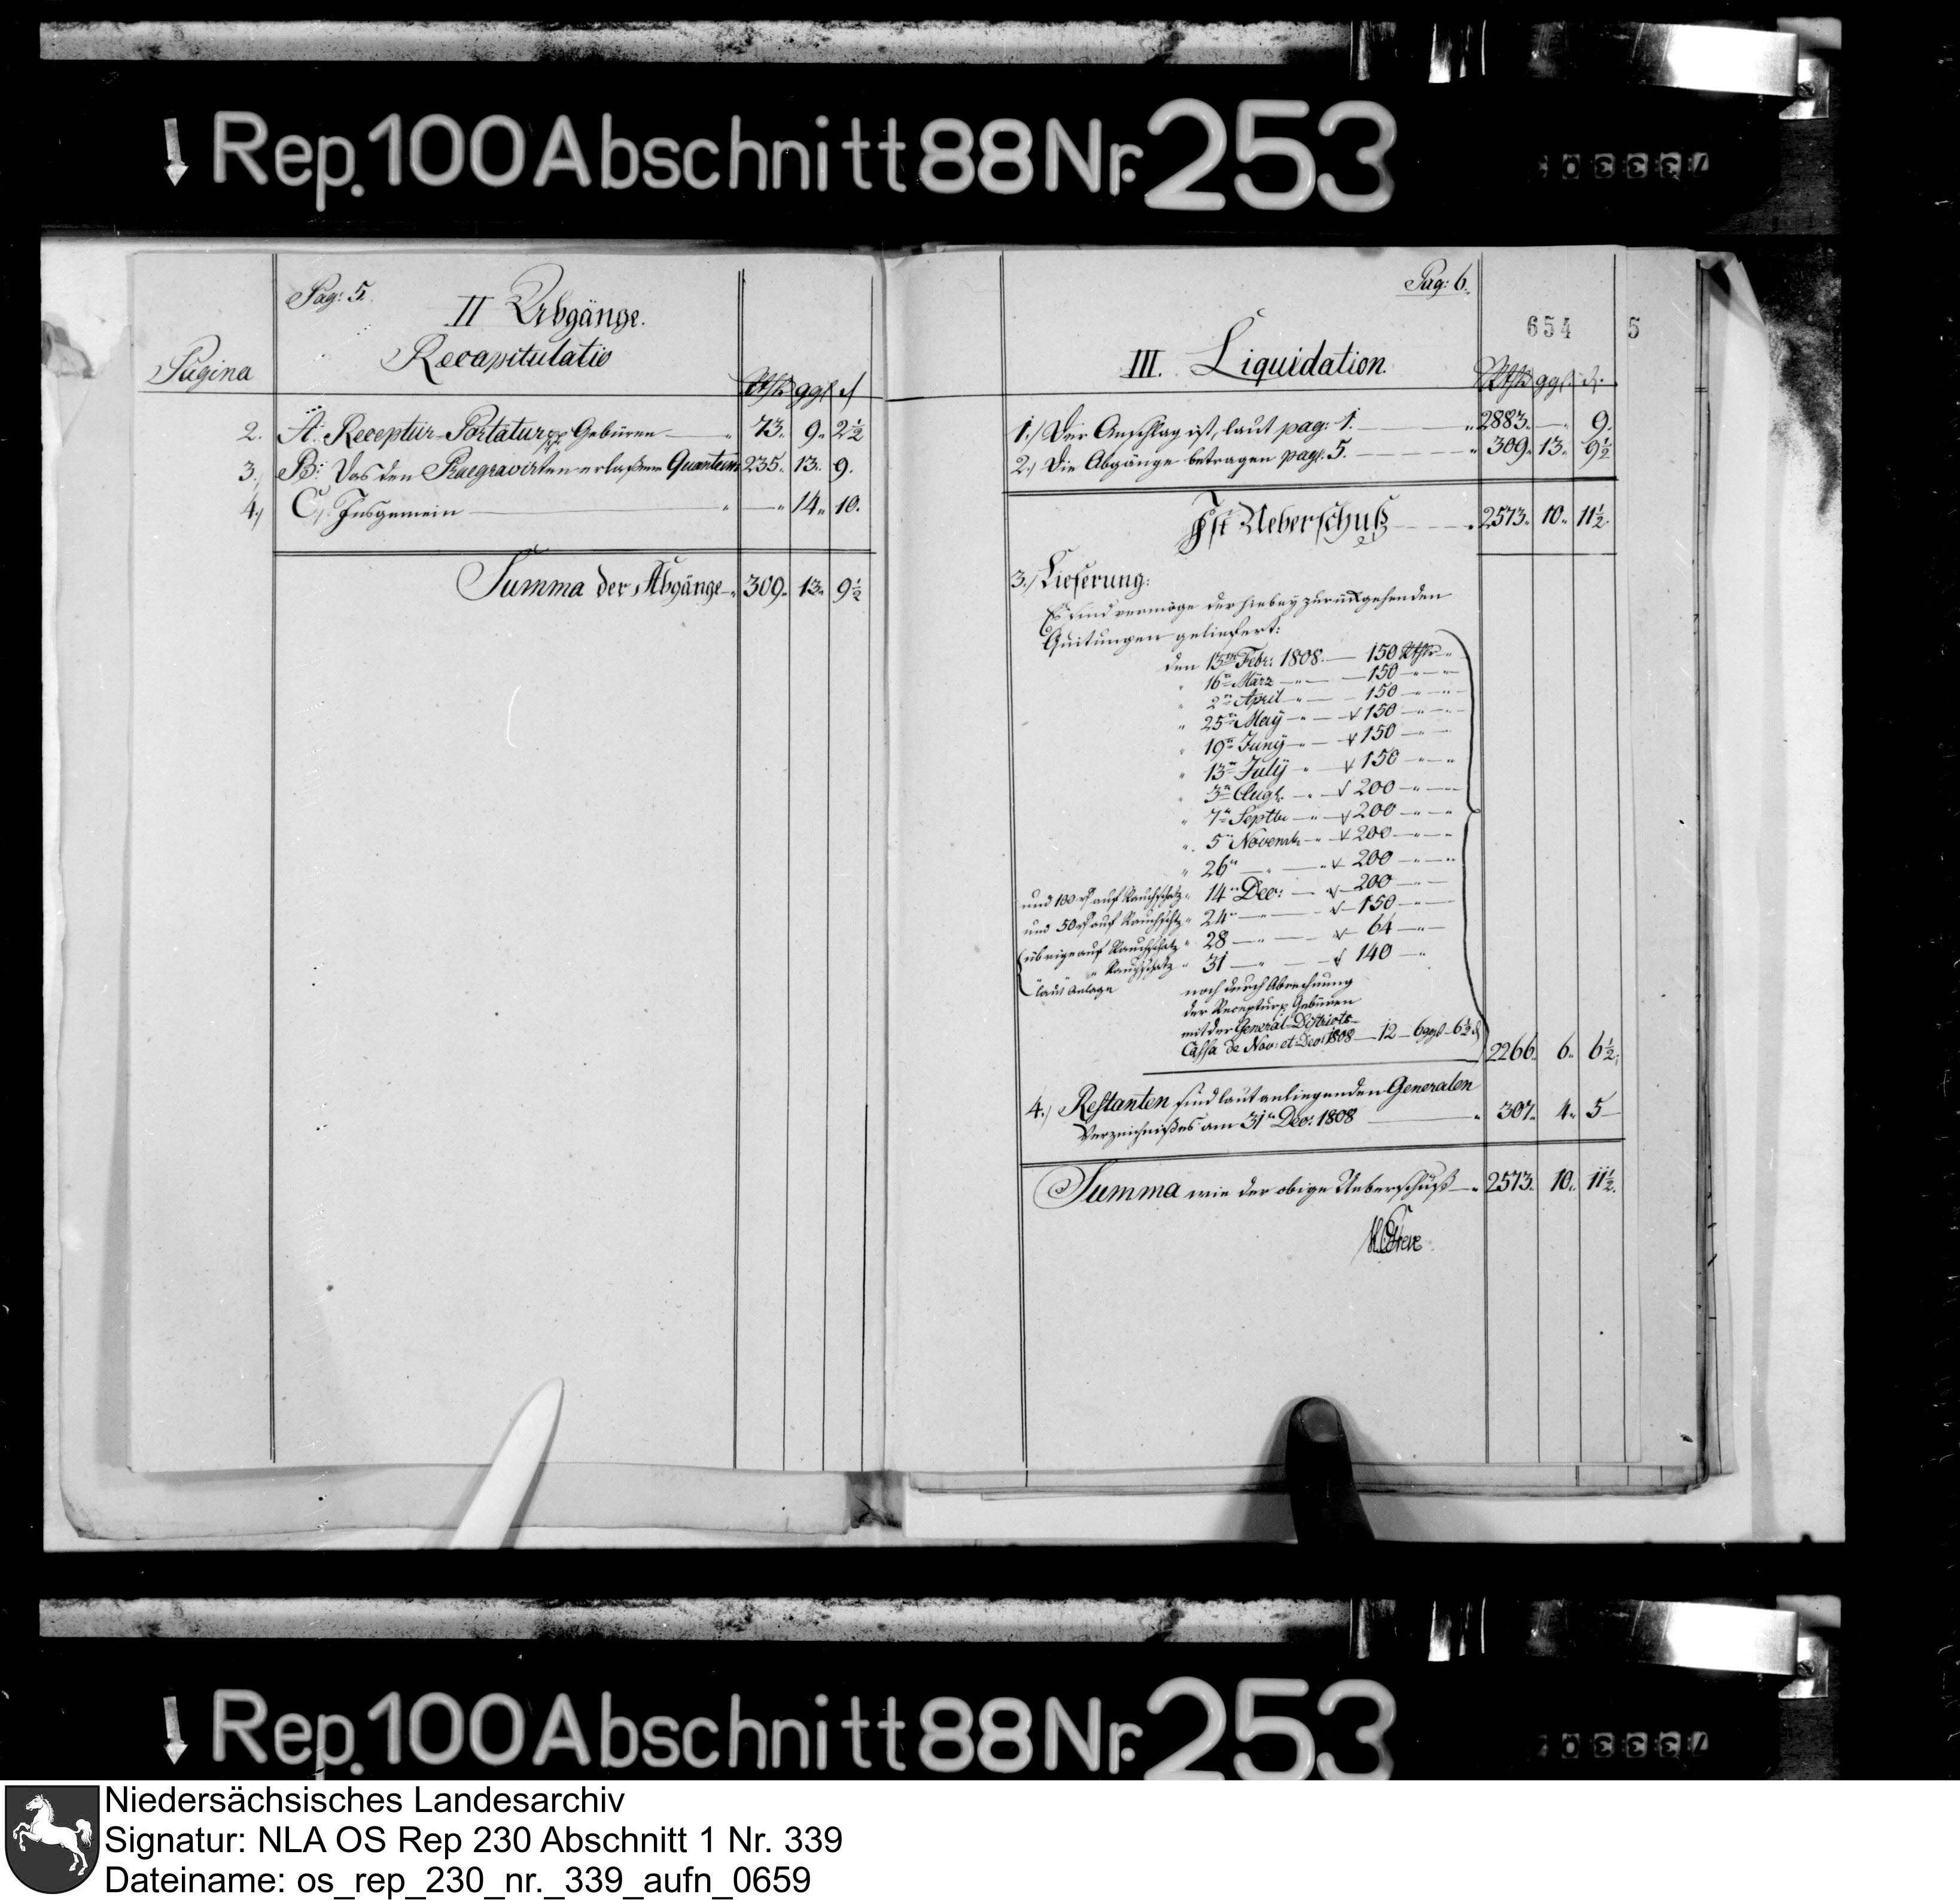 Rep. 100 Abschnitt 88 Nr. 253
Pag: 5.
II Abgänge.
Recapitulatio
Pagina
Rthlr ggl ₰
2. A: Receptur-Portatur pp Gebüren 73. 9. 2½
3. B: Das den Praegravirten erlaßene Quantum 235. 13. 9.
4.) C. Insgemein — 14. 10.
Summa der Abgänge 309. 13. 9½
Pag: 6.
654 5
III. Liquidation.
Rthlr ggl. ₰.
1.) Der Anschlag ist, laut pag: 1. 2883. — 9.
2.) Die Abgänge betragen pag. 5. 309. 13. 9½
Ist Ueberschuß 2573. 10. 11½.
3.) Lieferung:
Es sind vermöge der hiebey zurückgehenden
Quitungen geliefert:
den 13ten Febr: 1808. — 150 Rthlr
" 16n März — 150
" 2n April — 150
" 25n May — 150
" 19n Juny — 150
" 13n July — 150
" 3n Augt. — 200
" 7n Septbr — 200
" 5n Novembr — 200
" 26n — 200
und 100 rt auf Rauchschatz " 14n Dec: — 200
und 50 rt auf Rauchschtz " 24n — 150
übrige auf Rauchschatz " 28 — 64
" Rauchschatz " 31 — 140
laut Anlage
noch durch Abrechnung
der Receptur p Gebüren
mit der General-Districts-
Cassa de Nov: et Dec: 1808 — 12 — 6 ggl — 6½ ₰
2266. 6. 6½.
4.) Restanten sind laut anliegenden Generalen
Verzeichnißes am 31n Dec: 1808 307. 4. 5
Summa wie der obige Ueberschuß 2573. 10. 11½.
Rep. 100 Abschnitt 88 Nr. 253
Niedersächsisches Landesarchiv
Signatur: NLA OS Rep 230 Abschnitt 1 Nr. 339
Dateiname: os_rep_230_nr._339_aufn_0659